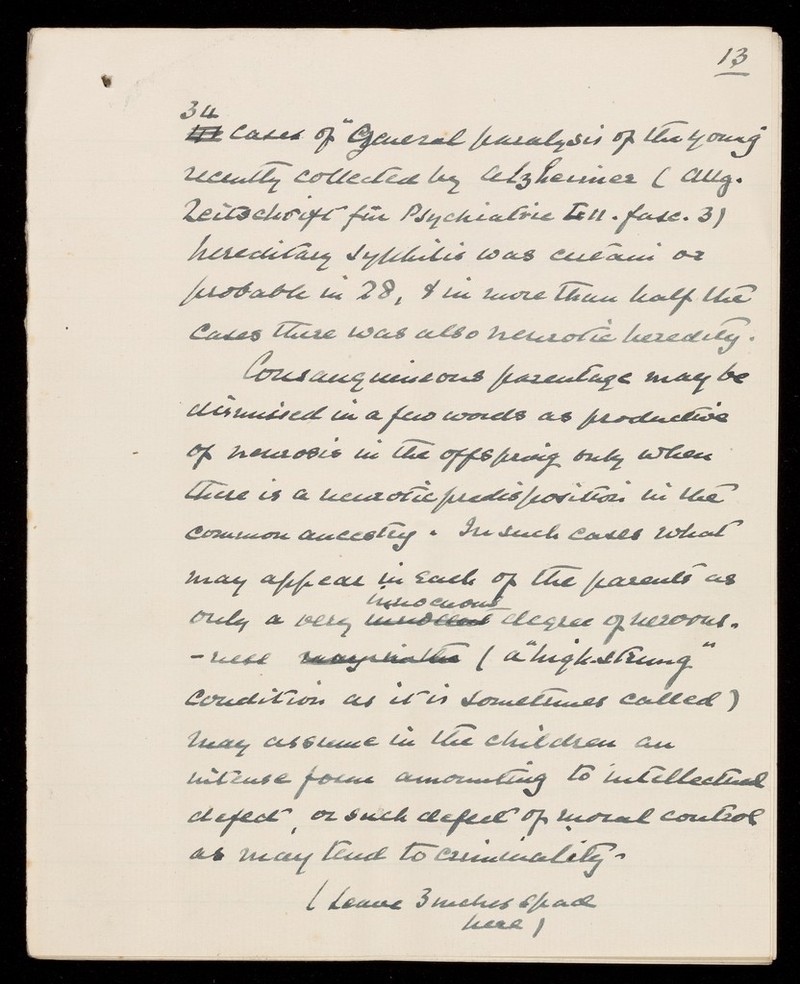 13
34
cases of "General paralysis of the young
recently collected by Alzheimer (Allg.
Zeitschrift für Psychiatrie . fasc. 3)
hereditary syphilis was certain or
probable in 28, & in more than half the
cases there was also neurotic heredity.
Consanguineous parentage may be
dismissed in a few words as productive
of neurosis in the offspring only when
there is a neurotic predisposition in the
common ancestry. In such cases what
may appear in each of the parents as
innocuous
only a very degree of nervous-
-ness (a "high-strung"
condition as it is sometimes called)
may assume in the children an
intense form amounting to intellectual
defect, or such defect of moral control
as may tend to criminality.
(Leave 3 inches space
here)